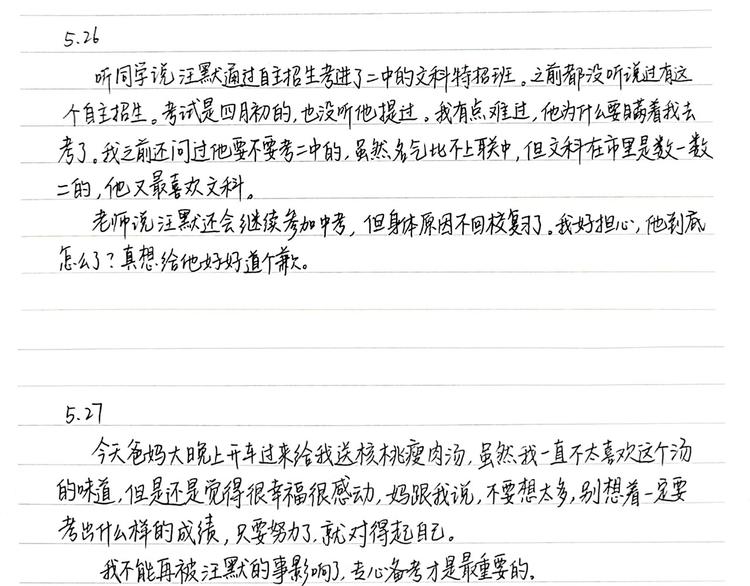 5.26
听同学说汪默通过自主招生考进了二中的文科特招班。之前都没听说过有这
个自主招生。考试是四月初的，也没听他提过。我有点难过，他为什么要瞒着我去
考了。我之前还问过他要不要考二中的，虽然名气比不上联中，但文科在市里是数一数
二的，他又最喜欢文科。
老师说汪默还会继续参加中考，但身体原因不回校复习了。我好担心，他到底
怎么了？真想给他好好道个歉。
5.27
今天爸妈大晚上开车过来给我送核桃瘦肉汤，虽然我一直不太喜欢这个汤
的味道，但是还是觉得很幸福很感动，妈跟我说，不要想太多，别想着一定要
考出什么样的成绩，只要努力了，就对得起自己。
我不能再被汪默的事影响了，专心备考才是最重要的。